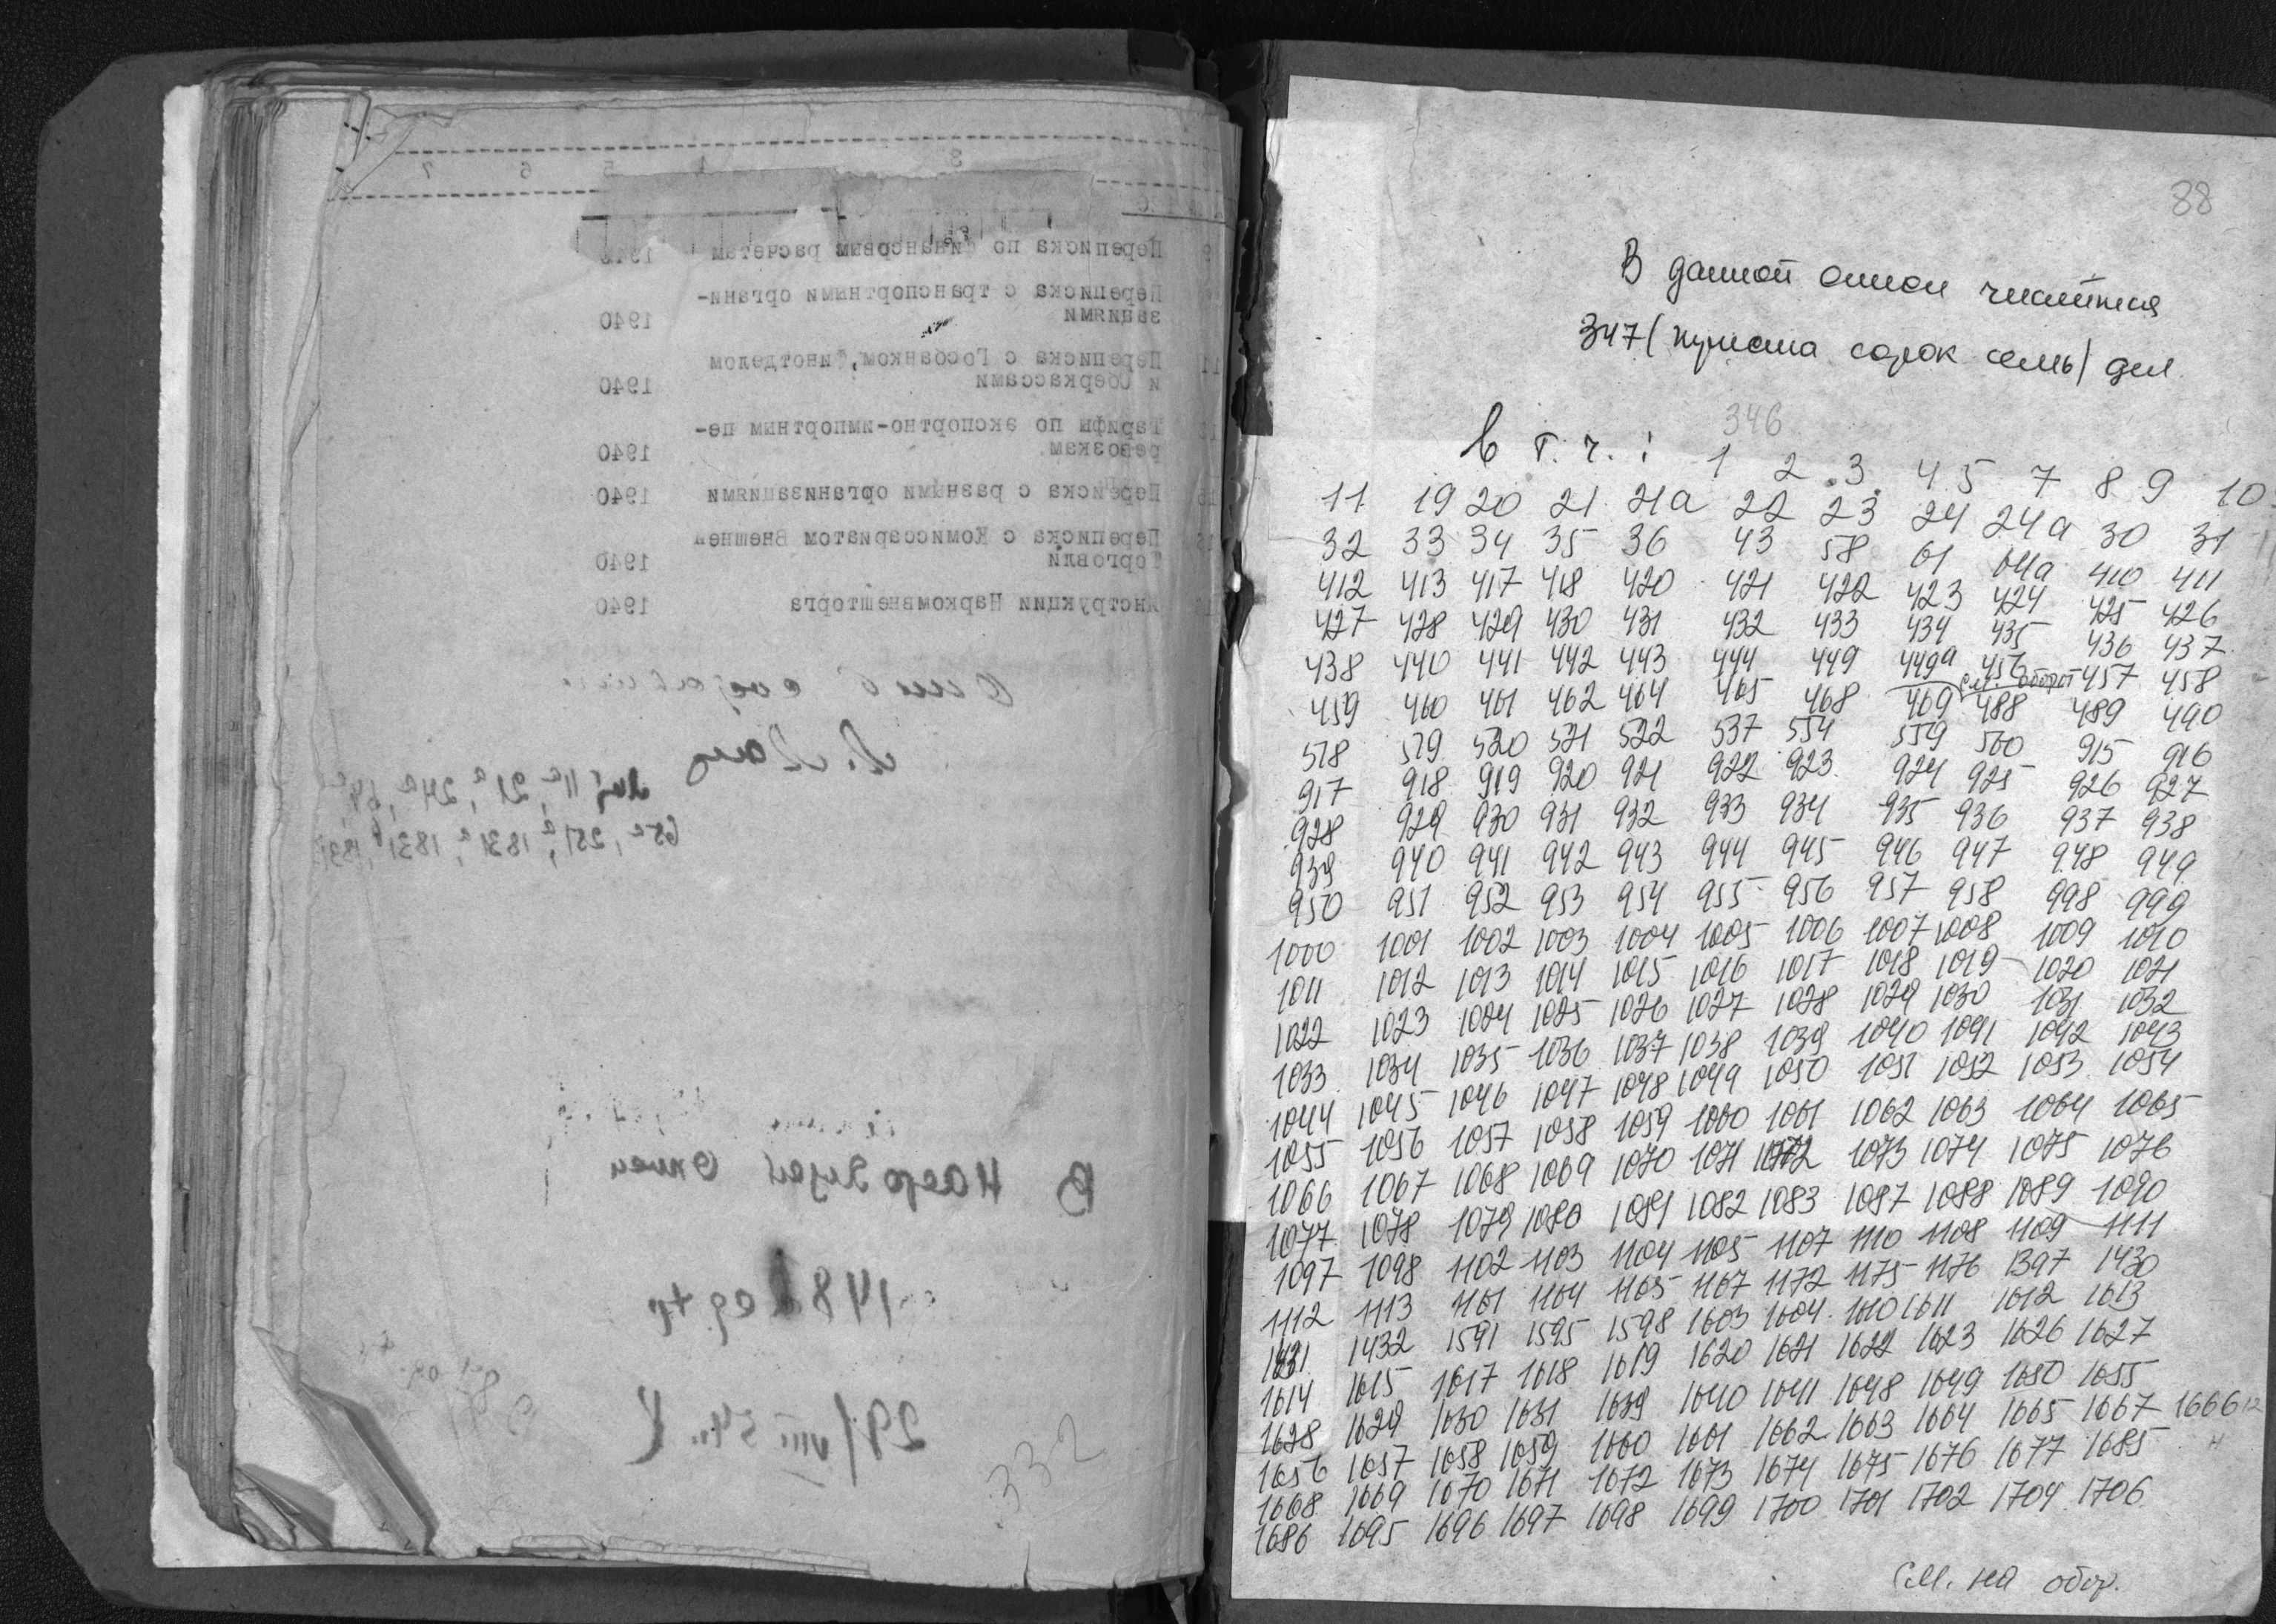 3 4 5 6 7
9 Переписка по финансовым расчетам 1940
Переписка с транспортными органи-
зациями 1940
11 Переписка с Госбанком, Финотделом
и Сберкассами 1940
Тарифы по экспортно-импортным пе-
ревозкам 1940
Переписка с разными организациями 1940
Переписка с Комиссариатом Внешней
Торговли 1940
Инструкции Наркомвнешторга 1940
Опись
11а, 21а, 24а, 64а,
65а, 251а, 1831а, 1831б,
В настоящей описи
148
29/VIII 54г.
332
88
В данной описи числится
347 (триста сорок семь) дел
346
в т.ч.: 1 2 3 4 5 7 8 9 10
11 19 20 21 21а 22 23 24 24а 30 31
32 33 34 35 36 43 58 61 64а 410 411
412 413 417 418 420 421 422 423 424 425 426
427 428 429 430 431 432 433 434 435 436 437
438 440 441 442 443 444 449 449а 456 457 458
см. оборот
459 460 461 462 464 465 468 469 488 489 490
518 519 520 521 522 537 554 559 560 915 916
917 918 919 920 921 922 923 924 925 926 927
928 929 930 931 932 933 934 935 936 937 938
939 940 941 942 943 944 945 946 947 948 949
950 951 952 953 954 955 956 957 958 998 999
1000 1001 1002 1003 1004 1005 1006 1007 1008 1009 1010
1011 1012 1013 1014 1015 1016 1017 1018 1019 1020 1021
1022 1023 1024 1025 1026 1027 1028 1029 1030 1031 1032
1033 1034 1035 1036 1037 1038 1039 1040 1041 1042 1043
1044 1045 1046 1047 1048 1049 1050 1051 1052 1053 1054
1055 1056 1057 1058 1059 1060 1061 1062 1063 1064 1065
1066 1067 1068 1069 1070 1071 1072 1073 1074 1075 1076
1077 1078 1079 1080 1081 1082 1083 1087 1088 1089 1090
1097 1098 1102 1103 1104 1105 1107 1110 1108 1109 1111
1112 1113 1161 1164 1165 1167 1172 1175 1176 1397 1430
1431 1432 1591 1595 1598 1603 1604 1610 1611 1612 1613
1614 1615 1617 1618 1619 1620 1621 1622 1623 1626 1627
1628 1629 1630 1631 1639 1640 1641 1648 1649 1650 1655
1656 1657 1658 1659 1660 1661 1662 1663 1664 1665 1667 1666
1668 1669 1670 1671 1672 1673 1674 1675 1676 1677 1685
1686 1695 1696 1697 1698 1699 1700 1701 1702 1704 1706
См. на обор.